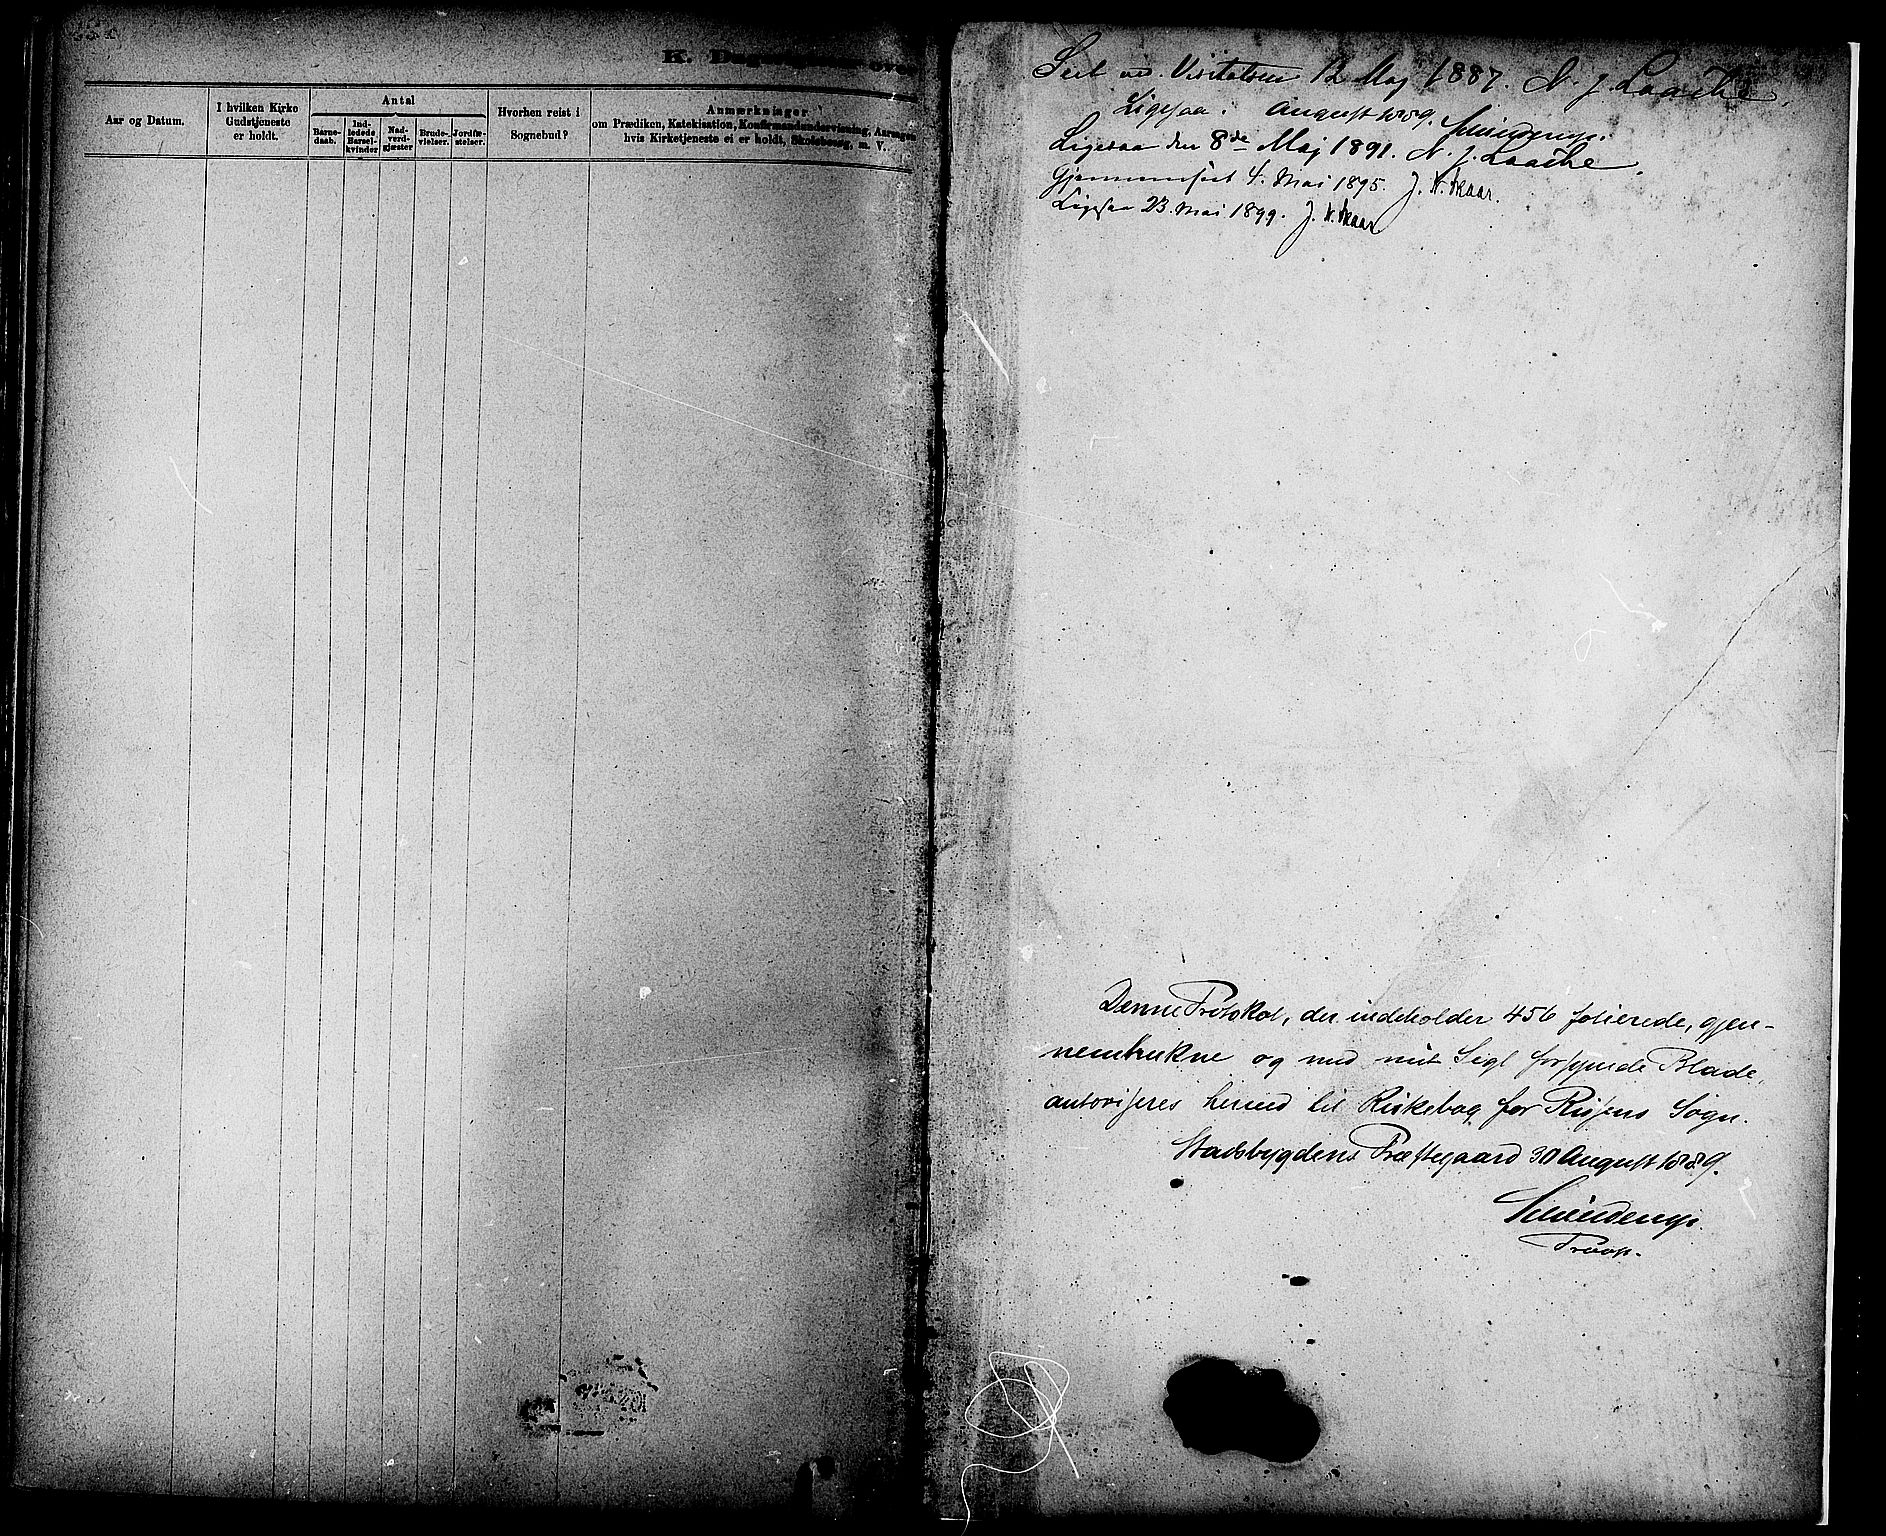 K. Dagregister over
Aar og Datum.
I hvilken Kirke
Gudstjeneste
er holdt.
Antal
Barne-
daab.
Ind-
ledede
Barsel-
kvinder
Nad-
verd-
gjæster
Brude-
vielser.
Jordfæ-
stelser.
Hvorhen reist i
Sognebud?
Anmærkninger
om Prædiken, Katekisation, Konfirmandundervisning, Aarsagen
hvis Kirketjeneste ei er holdt, Skolebesøg, m. V.
Seet ved Visitatsen 12 Maj 1887. N. J. Laache.
Ligesaa. August 1889.
Ligesaa den 8de Maj 1891. N. J. Laache.
Gjennemseet 4. Mai 1895. J. N. Skaar.
Ligesaa 23. Mai 1899. J. N. Skaar.
Denne Protokol, der indeholder 456 folierede, gjen-
nemtrukne og med mit Sigl forsynede Blade,
autoriseres herved til Kirkebog for Rissens Sogn.
Stadsbygdens Præstegaard 30 August 1889.
Provst.